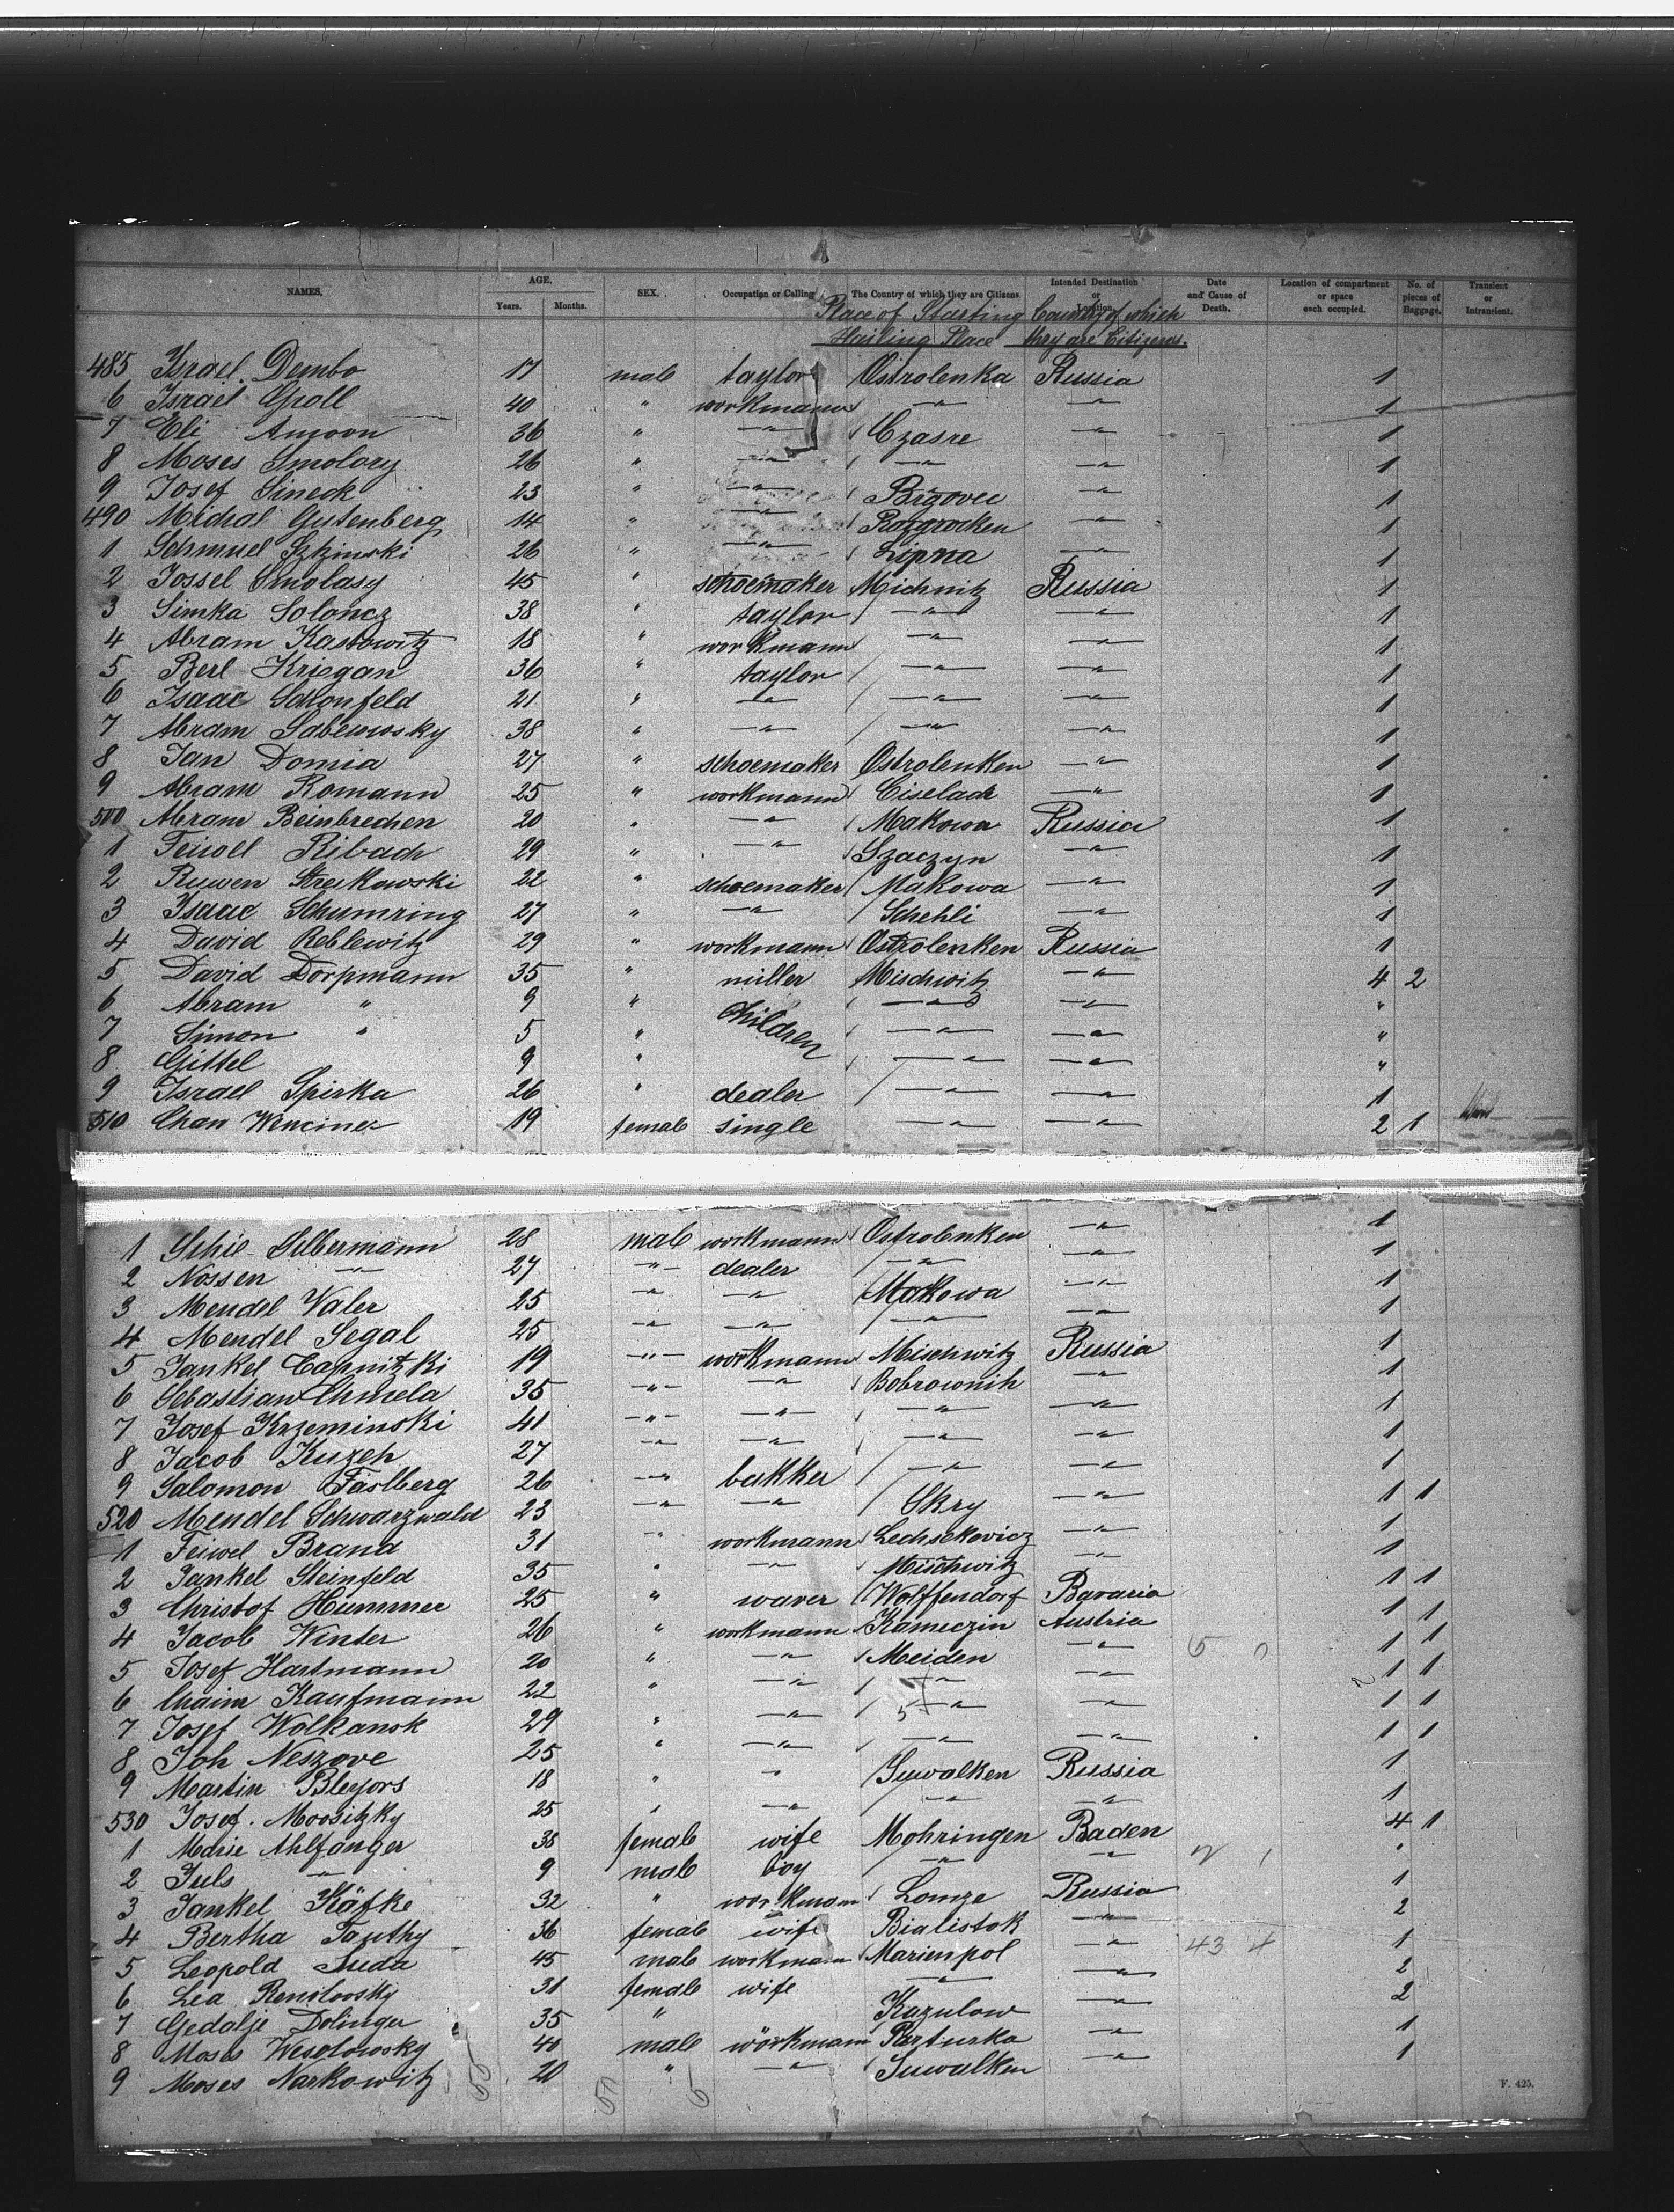 NAMES. AGE. Years. Months. SEX. Occupation or Calling The Country of which they are Citizens. Intended Destination or Location. Date and Cause of Death. Location of compartment or space each occupied. No. of pieces of Baggage. Transient or Intransient.
Place of Starting Country of which
Hailing Place they are Citizens.
485 Israel Dembo 17 male taylor Ostrolenka Russia 1
6 Israel Groll 40 " workmann —"— —"— 1
7 Eli Amoon 36 " —"— Czasre —"— 1
8 Moses Smolory 26 " —"— —"— —"— 1
9 Josef Sineck 23 " —"— —"— 1
490 Michal Gutenberg 14 " —"— —"— 1
1 Schmuel 26 " —"— Lipna —"— 1
2 Jossel Smolasy 45 " schoemaker Michnitz Russia 1
3 Simka Soloncz 38 " taylor —"— —"— 1
4 Abram Kastowitz 18 " workmann —"— —"— 1
5 Berl Kriegan 36 " taylor —"— —"— 1
6 Isaac Schonfeld 21 " —"— —"— —"— 1
7 Abram Sabewosky 38 " —"— —"— —"— 1
8 Jan Domia 27 " schoemaker Ostrolenken —"— 1
9 Abram Romann 25 " workmann Ciselack —"— 1
500 Abram Beinbrechen 20 " —"— Makowa Russia 1
1 Feiwel Ribach 29 " —"— Szaczyn —"— 1
2 Ruwen Strekowski 22 " schoemaker Makowa —"— 1
3 Isaac Schumring 27 " —"— Schehli —"— 1
4 David Reblewitz 29 " workmann Ostrolenken Russia 1
5 David Dorpmann 35 " miller Mischwitz —"— 4 2
6 Abram " 9 " Children —"— —"— "
7 Simon " 5 " —"— —"— "
8 Gittel 9 " —"— —"— "
9 Israel Spirka 26 " dealer —"— —"— 1
510 Chan Wenciner 19 female single —"— —"— 2 1
1 Schie Silbermann 28 male workmann Ostrolenken —"— 1
2 Nossen —"— 27 —"— dealer —"— —"— 1
3 Mendel Valer 25 —"— —"— Makowa —"— 1
4 Mendel Segal 25 —"— —"— —"— —"— 1
5 Jankel Capnitzki 19 —"— workmann Mischwitz Russia 1
6 Sebastian Chmela 35 —"— —"— Bobrownik —"— 1
7 Josef Krzeminski 41 —"— —"— —"— —"— 1
8 Jacob Kuzeh 27 —"— —"— —"— —"— 1
9 Salomon Faslberg 26 —"— bakker —"— —"— 1
520 Mendel Schwarzwald 23 —"— —"— Skry —"— 1 1
1 Feiwel Brand 31 " workmann Lechsekovicz —"— 1
2 Jankel Steinfeld 35 " —"— Mischwitz —"— 1
3 Christof Hümmer 25 " waver Wolffendorf Bavaria 1 1
4 Jacob Winter 26 " workmann Kameczin Austria 1 1
5 Josef Hartmann 20 " —"— Meiden —"— 1 1
6 Chaim Kaufmann 22 " —"— —"— —"— 1 1
7 Josef Wolkansk 29 " —"— —"— —"— 1 1
8 Joh Neszove 25 " —"— —"— —"— 1 1
9 Martin Bleyors 18 " " Suwalken Russia 1
530 Josef. Moositzky 25 " —"— —"— —"— 1
1 Marie Ahlfänger 38 female wife Mohringen Baden 4 1
2 Juls —"— 9 male boy —"— —"— "
3 Jankel Käfke 32 " workmann Lomze Russia 1
4 Bertha Tauthy 36 female wife Bialistok —"— 2
5 Leopold Suda 45 male workmann Marienpol —"— 43 4 1
6 Lea 31 female wife —"— —"— 2
7 Gedalje Dolinger 35 " Kazulow —"— 2
8 Moses Wesolowsky 40 male workmann —"— 1
9 Moses Narkowitz 20 " —"— Suwalken —"— 1
F. 425.